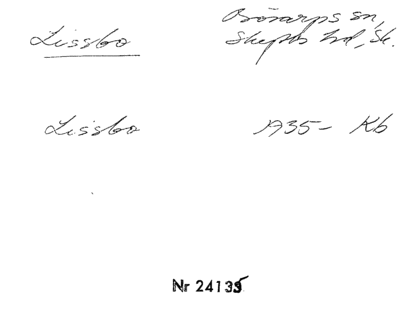 Lissbo
Oörarps sn,
Skytts hd, Sk.
Lissbo
1935- Kb
Nr 24135